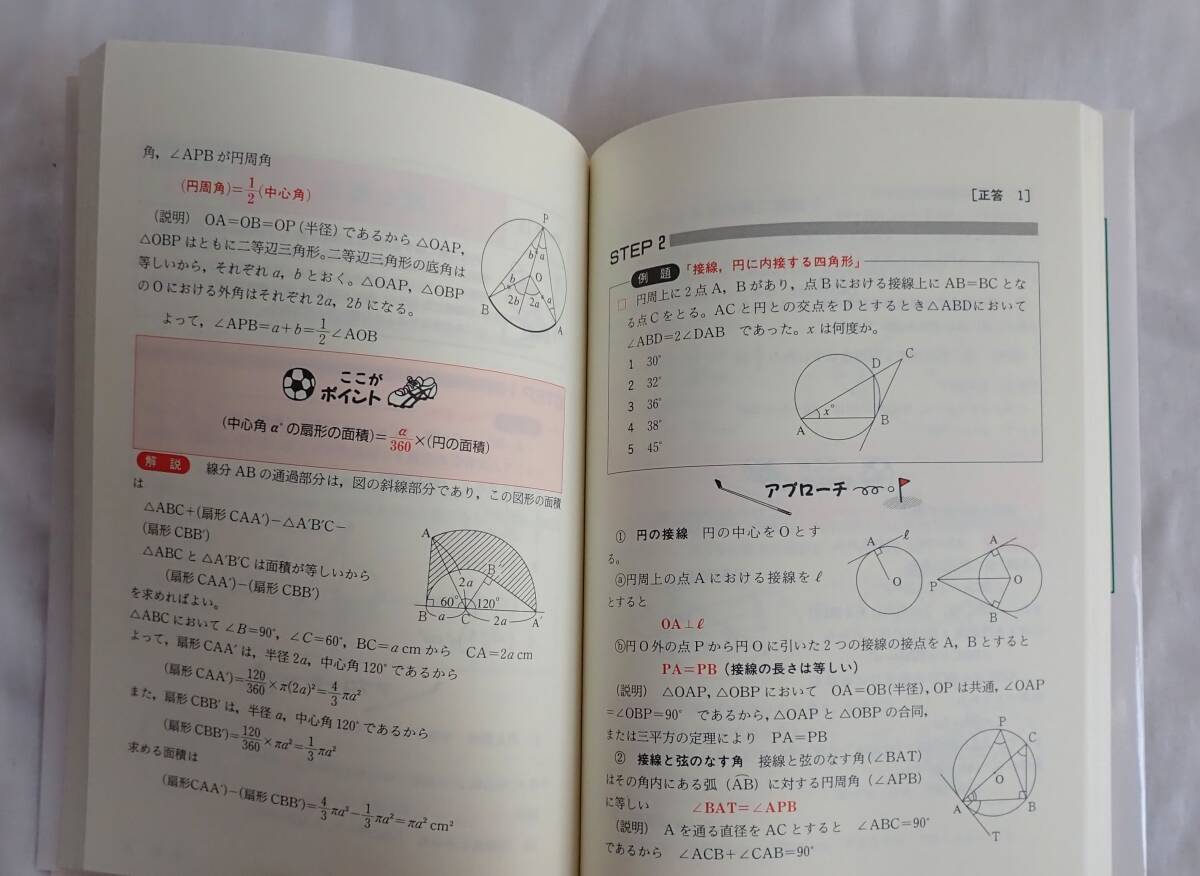 角，∠APBが円周角
(円周角)=1/2(中心角)
(説明) OA=OB=OP(半径)であるから△OAP，
△OBPはともに二等辺三角形。二等辺三角形の底角は
等しいから，それぞれa，bとおく。△OAP，△OBP
のOにおける外角はそれぞれ2a，2bになる。
よって，∠APB=a+b=1/2∠AOB
P
b a
O
b
2b 2a a
B
A
ここが
ポイント
(中心角α°の扇形の面積)=α/360×(円の面積)
解説 線分ABの通過部分は，図の斜線部分であり，この図形の面積
は
△ABC+(扇形CAA′)−△A′B′C−
(扇形CBB′)
△ABCと△A′B′Cは面積が等しいから
(扇形CAA′)−(扇形CBB′)
を求めればよい。
A
B′
2a
60° 120°
B a C 2a A′
△ABCにおいて∠B=90°，∠C=60°，BC=a cmから CA=2a cm
よって，扇形CAA′は，半径2a，中心角120°であるから
(扇形CAA′)=120/360×π(2a)²=4/3πa²
また，扇形CBB′は，半径a，中心角120°であるから
(扇形CBB′)=120/360×πa²=1/3πa²
求める面積は
(扇形CAA′)−(扇形CBB′)=4/3πa²−1/3πa²=πa² cm²
[正答 1]
STEP 2
例題 「接線，円に内接する四角形」
□ 円周上に2点A，Bがあり，点Bにおける接線上にAB=BCとな
る点Cをとる。ACと円との交点をDとするとき△ABDにおいて
∠ABD=2∠DAB であった。xは何度か。
1 30°
2 32°
3 36°
4 38°
5 45°
D C
x°
A B
アプローチ
① 円の接線 円の中心をOとす
る。
ⓐ円周上の点Aにおける接線をℓ
とすると
OA⊥ℓ
A ℓ
O
A
P O
B
ⓑ円O外の点Pから円Oに引いた2つの接線の接点をA，Bとすると
PA=PB (接線の長さは等しい)
(説明) △OAP，△OBPにおいて OA=OB(半径)，OPは共通，∠OAP
=∠OBP=90° であるから，△OAPと△OBPの合同，
または三平方の定理により PA=PB
② 接線と弦のなす角 接線と弦のなす角(∠BAT)
はその角内にある弧(AB)に対する円周角(∠APB)
に等しい ∠BAT=∠APB
(説明) Aを通る直径をACとすると ∠ABC=90°
であるから ∠ACB+∠CAB=90°
P
C
O
A B
T